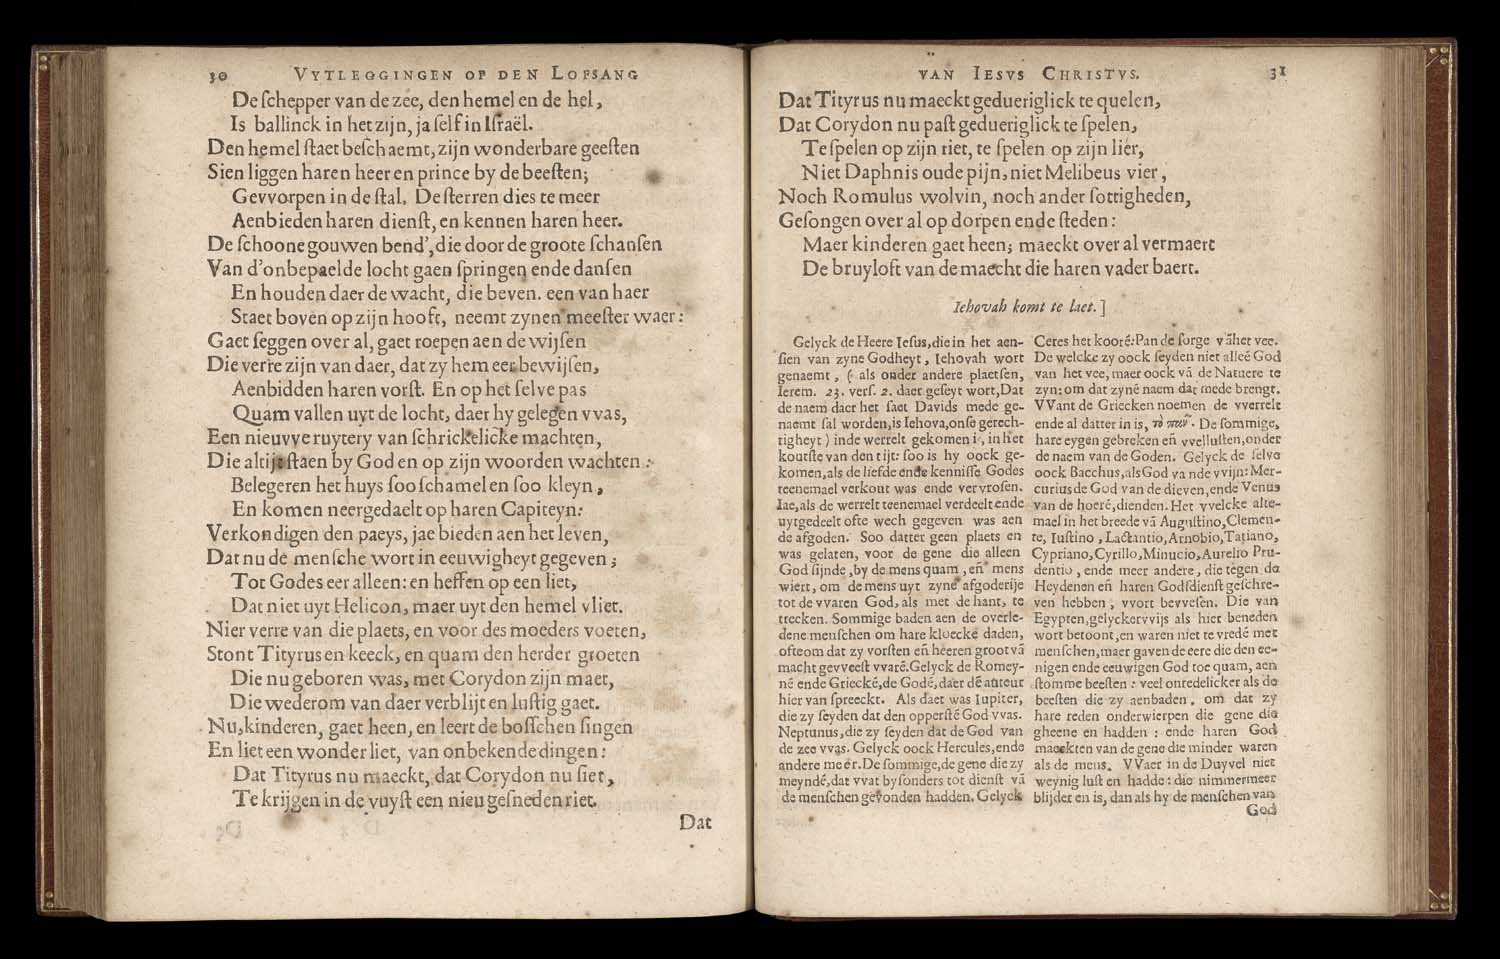 30 VYTLEGGINGEN OP DEN LOFSANG
De schepper van de zee, den hemel en de hel,
Is ballinck in het zijn, ja self in Israël.
Den hemel staet beschaemt, zijn wonderbare geesten
Sien liggen haren heer en prince by de beesten;
Gevvorpen in de stal. De sterren dies te meer
Aenbieden haren dienst, en kennen haren heer.
De schoone gouwen bend', die door de groote schansen
Van d'onbepaelde locht gaen springen ende dansen
En houden daer de wacht, die beven. een van haer
Staet boven op zijn hooft, neemt zynen meester waer:
Gaet seggen over al, gaet roepen aen de wijsen
Die verre zijn van daer, dat zy hem eer bewijsen,
Aenbidden haren vorst. En op het selve pas
Quam vallen uyt de locht, daer hy gelegen vvas,
Een nieuvve ruytery van schrickelicke machten,
Die altijt staen by God en op zijn woorden wachten:
Belegeren het huys soo schamel en soo kleyn,
En komen neergedaelt op haren Capiteyn:
Verkondigen den paeys, jae bieden aen het leven,
Dat nu de mensche wort in eeuwigheyt gegeven;
Tot Godes eer alleen: en heffen op een liet,
Dat niet uyt Helicon, maer uyt den hemel vliet.
Niet verre van die plaets, en voor des moeders voeten,
Stont Tityrus en keeck, en quam den herder groeten
Die nu geboren was, met Corydon zijn maet,
Die wederom van daer verblijt en lustig gaet.
Nu, kinderen, gaet heen, en leert de bosschen singen
En liet een wonder liet, van onbekende dingen:
Dat Tityrus nu maeckt, dat Corydon nu siet,
Te krijgen in de vuyst een nieu gesneden riet.
Dat
VAN IESVS CHRISTVS. 31
Dat Tityrus nu maeckt gedueriglick te quelen,
Dat Corydon nu past gedueriglick te spelen,
Te spelen op zijn riet, te spelen op zijn lier,
Niet Daphnis oude pijn, niet Melibeus vier,
Noch Romulus wolvin, noch ander sottigheden,
Gesongen over al op dorpen ende steden:
Maer kinderen gaet heen; maeckt over al vermaert
De bruyloft van de maecht die haren vader baert.
Iehovah komt te laet.]
Gelyck de Heere Iesus, die in het aen-
sien van zyne Godheyt, Iehovah wort
genaemt, (: als onder andere plaetsen,
Ierem. 23. vers. 2. daer geseyt wort, Dat
de naem daer het saet Davids mede ge-
naemt sal worden, is Iehova, onse gerech-
tigheyt) in de werrelt gekomen is, in het
koutste van den tijt: soo is hy oock ge-
komen, als de liefde ende kennisse Godes
teenemael verkout was ende vervrosen.
Iae, als de werrelt teenemael verdeelt ende
uytgedeelt ofte wech gegeven was aen
de afgoden. Soo datter geen plaets en
was gelaten, voor de gene die alleen
God sijnde, by de mens quam, en̄ mens
wiert, om de mens uyt zyne afgoderije
tot de vvaren God, als met de hant, te
trecken. Sommige baden aen de overle-
dene menschen om hare kloecke daden,
ofte om dat zy vorsten en̄ heeren groot vā
macht gevveest vvarē. Gelyck de Romey-
nē ende Grieckē, de Godē, daer dē auteur
hier van spreeckt. Als daer was Iupiter,
die zy seyden dat den opperstē God vvas.
Neptunus, die zy seyden dat de God van
de zee vvas. Gelyck oock Hercules, ende
andere meer. De sommige, de gene die zy
meyndē, dat vvat bysonders tot dienst vā
de menschen gevonden hadden. Gelyck
Ceres het koorē: Pan de sorge vā het vee.
De welcke zy oock seyden niet alleē God
van het vee, maer oock vā de Natuere te
zyn: om dat zynē naem dat mede brengt.
VVant de Griecken noemen de vverrelt
ende al datter in is, τὸ πᾶν. De sommige,
hare eygen gebreken en̄ vvellusten, onder
de naem van de Goden. Gelyck de selve
oock Bacchus, als God va nde vvijn: Mer-
curius de God van de dieven, ende Venus
van de hoerē, dienden. Het vvelcke alte-
mael in het breede vā Augustino, Clemen-
te, Iustino, Lactantio, Arnobio, Tatiano,
Cypriano, Cyrillo, Minucio, Aurelio Pru-
dentio, ende meer andere, die tegen de
Heydenen en̄ haren Godsdienst geschre-
ven hebben, vvort bevvesen. Die van
Egypten, gelyckervvijs als hier beneden
wort betoont, en waren niet te vredē met
menschen, maer gaven de eere die den ee-
nigen ende eeuwigen God toe quam, aen
stomme beesten: veel onredelicker als de
beesten die zy aenbaden, om dat zy
hare reden onderwierpen die gene die
gheene en hadden: ende haren God
maeckten van de gene die minder waren
als de mens. VVaer in de Duyvel niet
weynig lust en hadde: die nimmermeer
blijder en is, dan als hy de menschen van
God